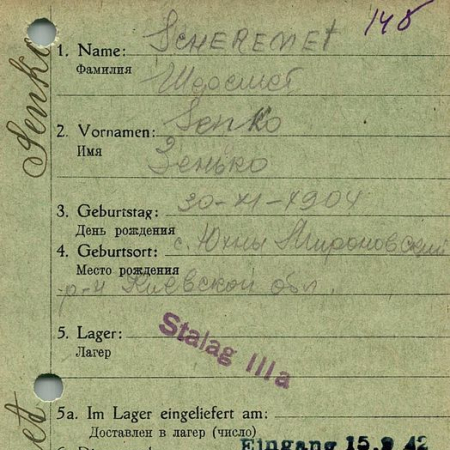 146
Senko
1. Name: SCHEREMET
Фамилия Шеремет
2. Vornamen: Senko
Имя Зенько
3. Geburtstag: 30-XI-1904
День рождения
4. Geburtsort: с. Юхны Мироновский
Место рождения
р-н Киевской обл.
5. Lager:
Лагер
Stalag IIIa
5a. Im Lager eingeliefert am:
Доставлен в лагер (число)
Eingang 15.9 42